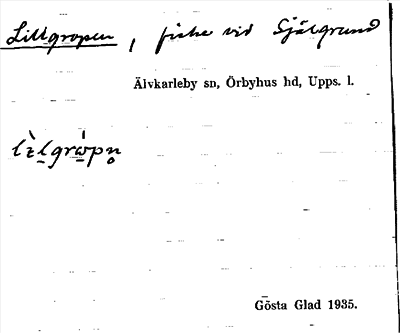 Lillgropen, fiske vid Själgrund
Älvkarleby sn, Örbyhus hd, Upps. l.
lɪ̀l̠grὼ̠pn̥
Gösta Glad 1935.